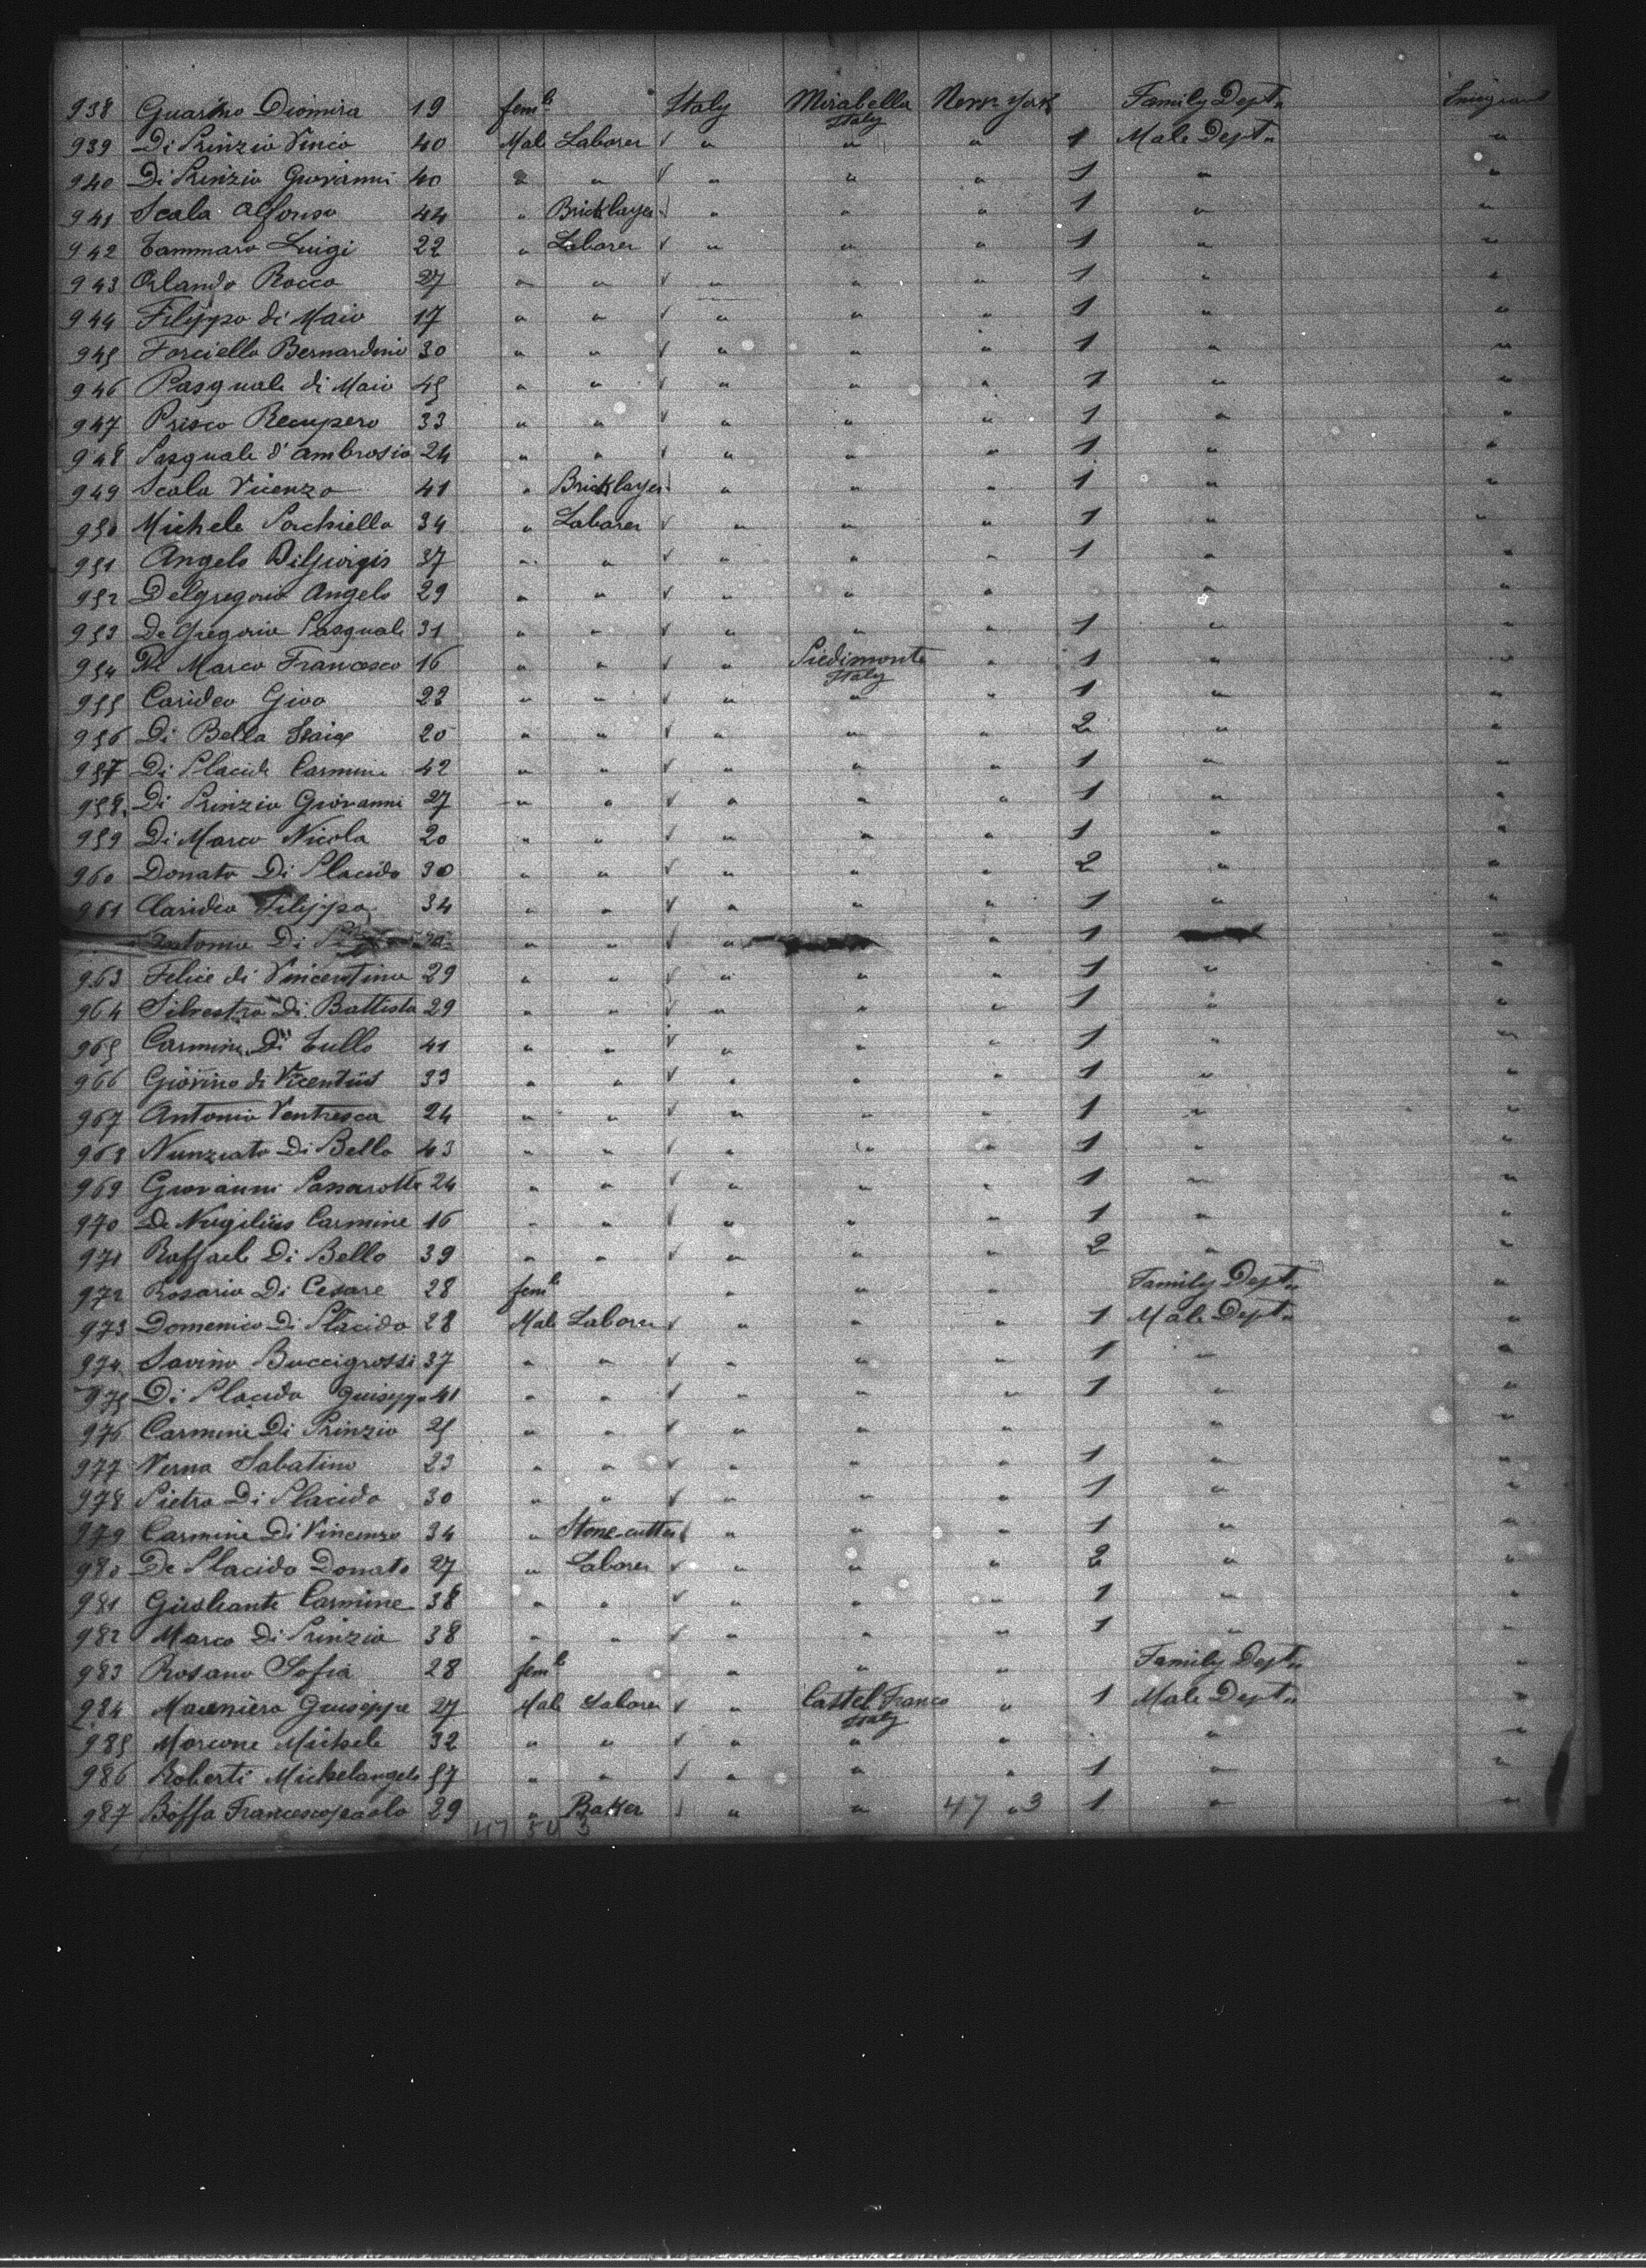 938 Guarino Diomira 19 fem^le Italy Mirabella Italy New York Family Dept. Emigrant
939 Di Prinzio Vinco 40 Male Laborer √ " " " 1 Male Dept. "
940 Di Prinzio Giovanni 40 " " √ " " " 1 " "
941 Scala Alfonso 44 " Bricklayer √ " " " 1 " "
942 Tammaro Luigi 22 " Laborer √ " " " 1 " "
943 Orlando Rocco 27 " " √ " " " 1 " "
944 Filippo di Maio 17 " " √ " " " 1 " "
945 Forciello Bernardino 30 " " √ " " " 1 " "
946 Pasquale di Maio 45 " " √ " " " 1 " "
947 Prisco Recupero 33 " " √ " " " 1 " "
948 Pasquale d'Ambrosio 24 " " √ " " " 1 " "
949 Scala Vicenzo 41 " Bricklayer " " " 1 " "
950 Michele 34 " Laborer √ " " " 1 " "
951 Angelo DiGiorgis 37 " " √ " " " 1 " "
952 Delgregorio Angelo 29 " " √ " " " " "
953 De Gregorio Pasquale 31 " " √ " " " 1 " "
954 Di Marco Francesco 16 " " √ " Piedimonte Italy " 1 " "
955 Carideo Gio 23 " " √ " " " 1 " "
956 Di Bella 20 " " √ " " " 2 " "
957 Di Placido Carmine 42 " " √ " " " 1 " "
958 Di Prinzio Giovanni 27 " " √ " " " 1 " "
959 Di Marco Nicola 20 " " √ " " " 1 " "
960 Donato Di Placido 30 " " √ " " " 2 " "
961 Carideo Filippo 34 " " √ " " " 1 " "
Antonio Di " " √ " " 1 "
963 Felice di Vincentino 29 " " √ " " " 1 " "
964 Silvestro Di Battista 29 " " √ " " " 1 " "
965 Carmine Di Tullo 41 " " √ " " " 1 " "
966 Giovino di 33 " " √ " " " 1 " "
967 Antonio Ventresca 24 " " √ " " " 1 " "
968 Nunziato Di Bello 43 " " √ " " " 1 " "
969 Giovanni 24 " " √ " " " 1 " "
970 De Carmine 16 " " √ " " " 1 " "
971 Raffaele Di Bello 39 " " √ " " " 2 " "
972 Rosario Di Cesare 28 fem^le " " " Family Dept. "
973 Domenico Di Placido 28 Male Laborer √ " " " 1 Male Dept. "
974 Savino Buccigrossi 37 " " √ " " " 1 " "
975 Di Placido Guiseppe 41 " " √ " " " 1 " "
976 Carmine Di Prinzio 25 " " √ " " " " "
977 Verna Sabatino 23 " " √ " " " 1 " "
978 Pietro Di Placido 30 " " √ " " " 1 " "
979 Carmine Di Vincenzo 34 " Stone-cutter √ " " " 1 " "
980 De Placido Donato 27 " Laborer √ " " " 2 " "
981 Carmine 38 " " √ " " " 1 " "
982 Marco Di Prinzio 38 " " √ " " " 1 " "
983 Rosano Sofia 28 fem^le " " " Family Dept. "
984 Guiseppe 27 Male Laborer √ " Castel Franco Italy " 1 Male Dept. "
985 Morcone Michele 32 " " √ " " " " "
986 Roberti Michelangelo 57 " " √ " " " 1 " "
987 Boffa Francescopaolo 29 " Baker √ " " 47 " 3 1 " "
47 50 3